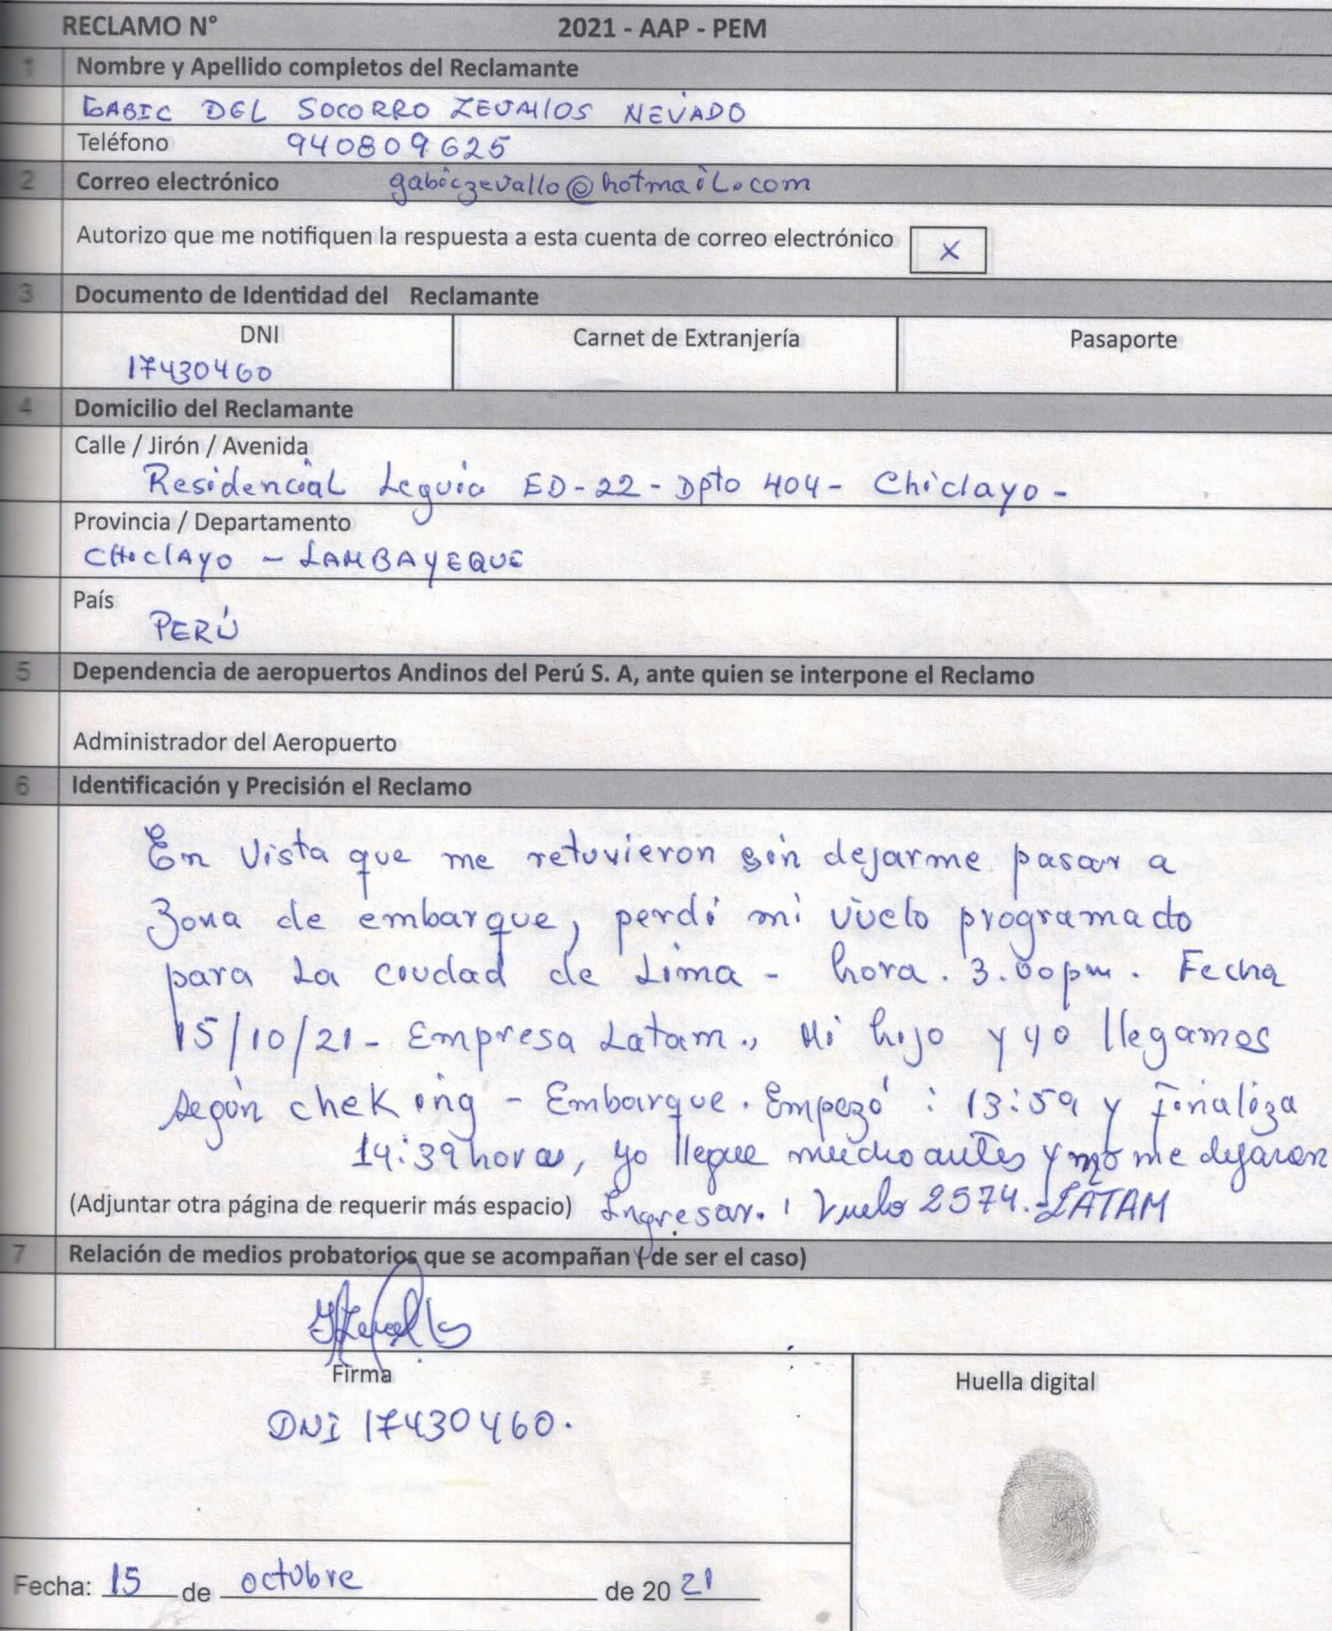 RECLAMO N° 2021 - AAP - PEM
1 Nombre y Apellido completos del Reclamante
GABIC DEL SOCORRO ZEVALLOS NEVADO
Teléfono 940809625
2 Correo electrónico gabiczevallo@hotmail.com
Autorizo que me notifiquen la respuesta a esta cuenta de correo electrónico X
3 Documento de Identidad del Reclamante
DNI Carnet de Extranjería Pasaporte
17430460
4 Domicilio del Reclamante
Calle / Jirón / Avenida
Residencial Leguia ED-22 - Dpto 404 - Chiclayo -
Provincia / Departamento
CHiclAyo - LAMBAYEQUE
País
PERÚ
5 Dependencia de aeropuertos Andinos del Perú S. A, ante quien se interpone el Reclamo
Administrador del Aeropuerto
6 Identificación y Precisión el Reclamo
En Vista que me retuvieron sin dejarme pasar a
Zona de embarque, perdí mi vuelo programado
para La ciudad de Lima - hora. 3.00pm. Fecha
15/10/21 - Empresa Latam., Mi hijo y yo llegamos
según chek ing - Embarque. Empezó : 13:59 y finaliza
14:39 horas, yo llegue mucho antes y no me dejaron
(Adjuntar otra página de requerir más espacio) Ingresar. Vuelo 2574. - LATAM
7 Relación de medios probatorios que se acompañan ( de ser el caso)
Firma
Huella digital
DNI 17430460.
Fecha: 15 de octubre de 20 21